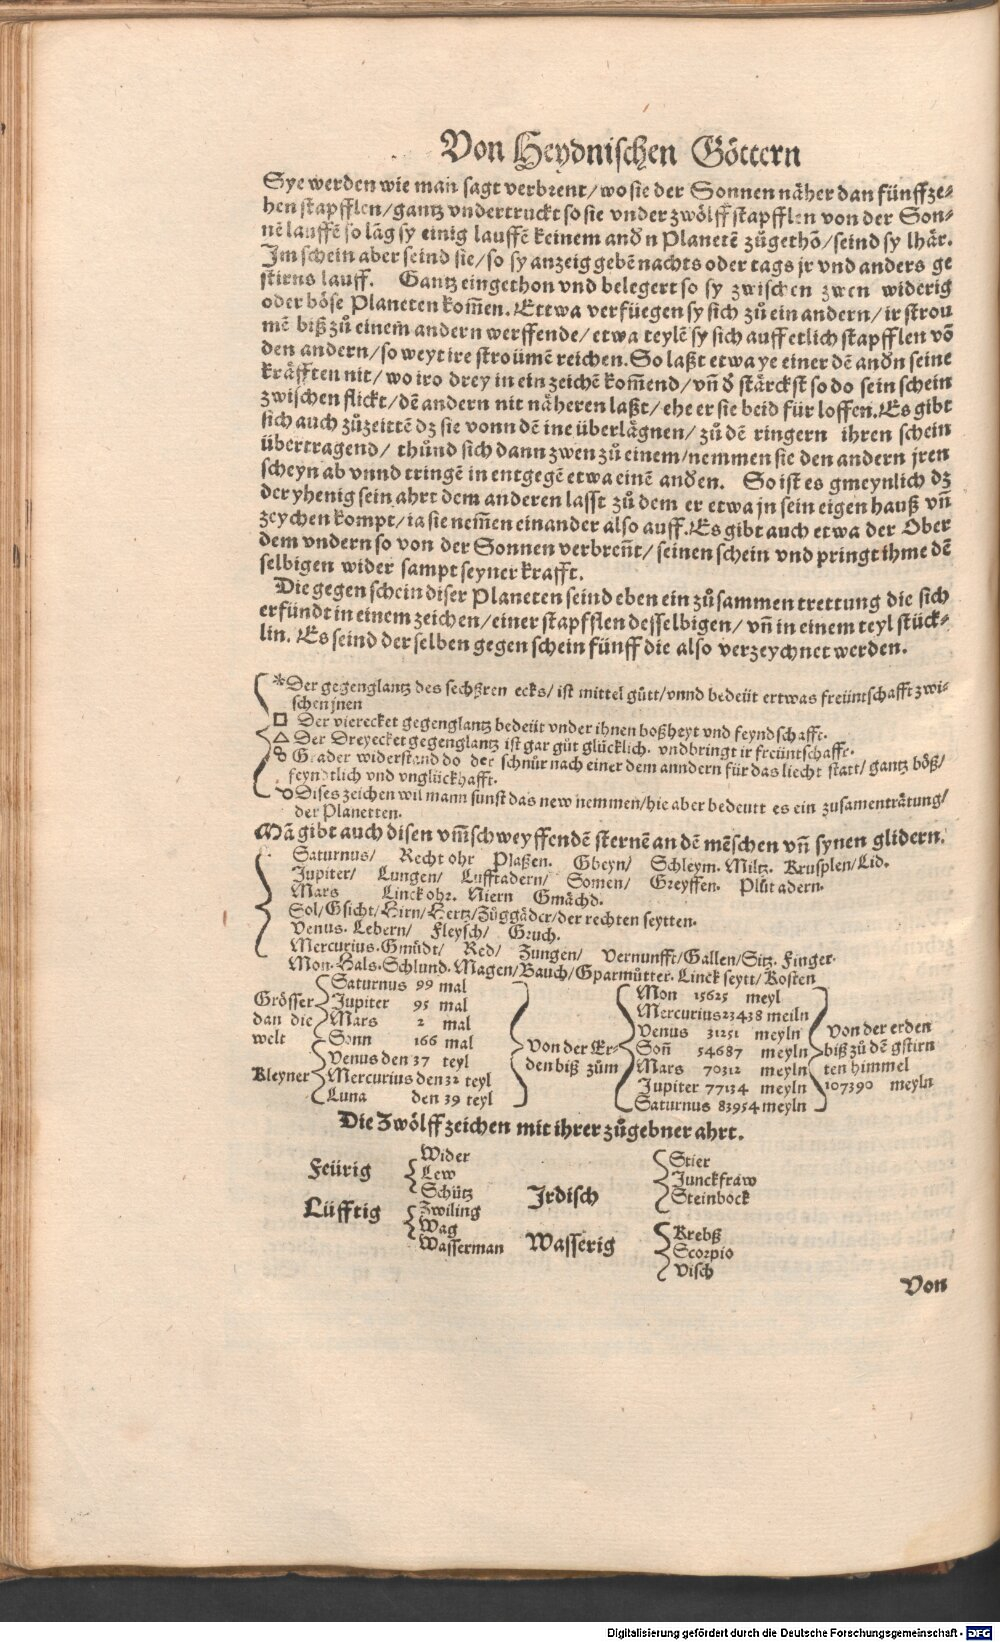 Von Heydnischen Göttern
Sye werden wie man sagt verbrent/ wo sie der Sonnen näher dan fünffze-
hen stapfflen/ gantz vndertruckt so sie vnder zwölff stapfflen von der Son-
nē lauffē so lāg sy einig lauffē keinem andn Planetē zůgethō/ seind sy lhär.
Im schein aber seind sie/ so sy anzeig gebē nachts oder tags jr vnd anders ge
stirns lauff. Gantz eingethon vnd belegert so sy zwischen zwen widerig
oder böse Planeten kom̄en. Ettwa verfüegen sy sich zů ein andern/ ir strou
mē biß zů einem andern werffende/ etwa teylē sy sich auff etlich stapfflen vō
den andern/ so weyt ire stroümē reichen. So laßt etwa ye einer dē andn seine
kräfften nit/ wo iro drey in ein zeichē kom̄end/ vn̄ d stärckst so do sein schein
zwischen flickt/ dē andern nit näheren laßt/ ehe er sie beid für loffen. Es gibt
sich auch zůzeittē dz sie vonn dē ine überlägnen/ zů dē ringern ihren schein
übertragend/ thůnd sich dann zwen zů einem/ nemmen sie den andern jren
scheyn ab vnnd tringē in entgegē etwa einē anden. So ist es gmeynlich dz
der yhenig sein ahrt dem anderen lasst zů dem er etwa jn sein eigen hauß vn̄
zeychen kompt/ ia sie nem̄en einander also auff. Es gibt auch etwa der Ober
dem vndern so von der Sonnen verbren̄t/ seinen schein vnd pringt ihme dē
selbigen wider sampt seyner krafft.
Die gegen schein diser Planeten seind eben ein zůsammen trettung die sich
erfündt in einem zeichen/ einer stapfflen desselbigen/ vn̄ in einem teyl stück-
lin. Es seind der selben gegen schein fünff die also verzeychnet werden.
*Der gegenglantz des sechßren ecks/ ist mittel gůtt/ vnnd bedeüt ertwas freüntschafft zwi-
schen jnen
□ Der vierecket gegenglantz bedeüt vnder ihnen boßheyt vnd feyndschafft.
△ Der Dreyecket gegenglantz ist gar gůt glücklich. vnd bringt ir freüntschafft.
☍ Grader widerstand do der schnůr nach einer dem anndern für das liecht statt/ gantz böß/
feyndtlich vnd vnglückhafft.
☌ Dises zeichen wil mann sunst das new nemmen/ hie aber bedeutt es ein zusamenträtung/
der Planetten.
Mā gibt auch disen vm̄schweyffendē sternē an dē mēschen vn̄ synen glidern.
Saturnus/ Recht ohr Plaßen. Gbeyn/ Schleym. Miltz. Krusplen/ Lid.
Jupiter/ Lungen/ Lufftadern/ Somen/ Greyffen. Plůt adern.
Mars Linck ohr. Niern Gmächd.
Sol/ Gsicht/ Hirn/ Hertz/ Züggäder/ der rechten seytten.
Venus. Lebern/ Fleysch/ Gruch.
Mercurius. Gmüdt/ Red/ Zungen/ Vernunfft/ Gallen/ Sitz. Finger.
Mon. Hals. Schlund. Magen/ Bauch/ Gparmůtter. Linck seytt/ Kosten
Grösser dan die welt
Saturnus 99 mal
Jupiter 95 mal
Mars 2 mal
Sonn 166 mal
Kleyner
Venus den 37 teyl
Mercurius den 32 teyl
Luna den 39 teyl
Von der Er-
den biß zům
Mon 15625 meyl
Mercurius 23438 meiln
Venus 31251 meyln
Son̄ 54687 meyln
Mars 70312 meyln
Jupiter 77134 meyln
Saturnus 83954 meyln
Von der erden
biß zů dē gstirn
ten himmel
107390 meyln
Die Zwölff zeichen mit ihrer zůgebner ahrt.
Feürig
Wider
Lew
Schütz
Lüfftig
Zwiling
Wag
Wasserman
Irdisch
Stier
Junckfraw
Steinbock
Wasserig
Krebß
Scorpio
Visch
Von
Digitalisierung gefördert durch die Deutsche Forschungsgemeinschaft - DFG